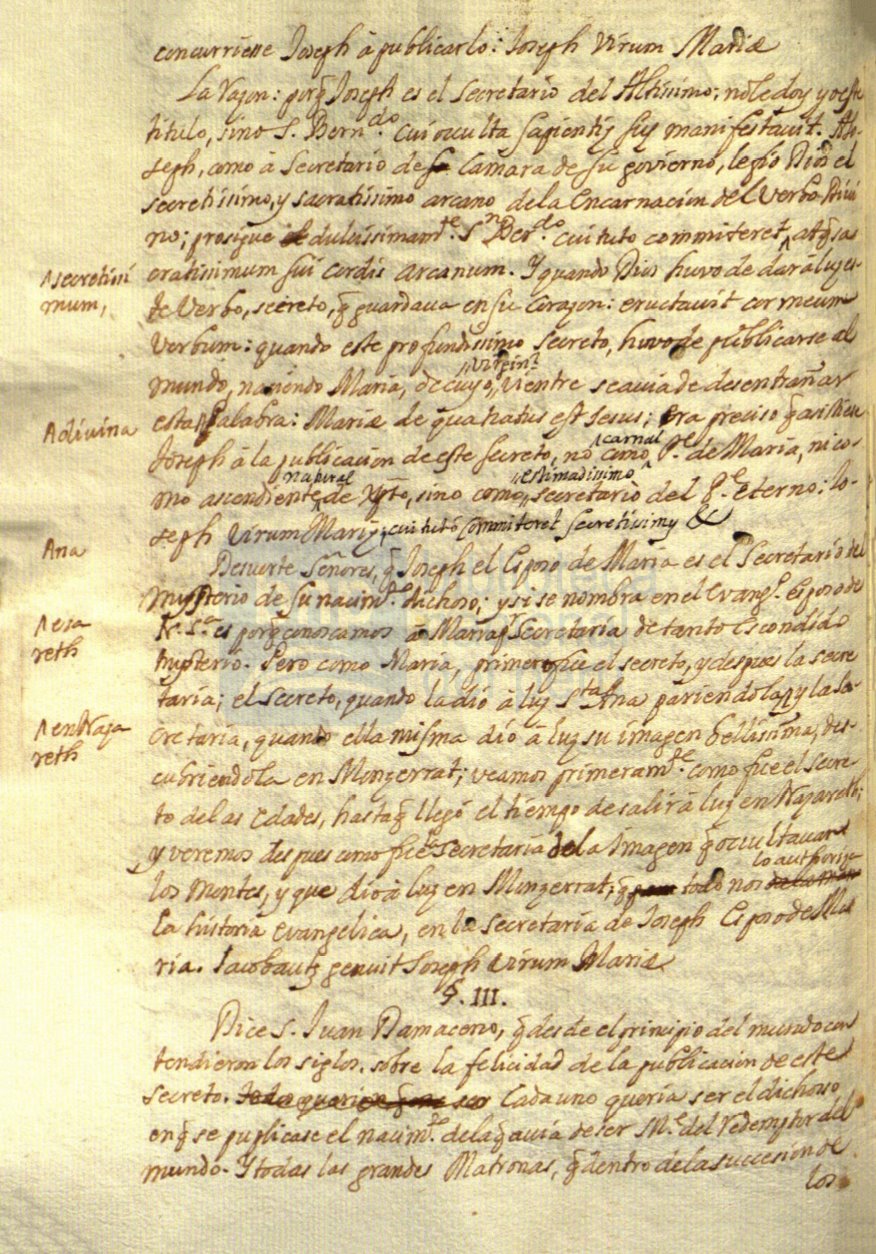 concurriesse Joseph â publicarlo: Joseph Virum Mariæ
La razon: porq̃ Joseph es el Secretario del Altissimo; no le doy yo este
titulo, sino S. Bern.do cui occulta sapientiȩ suȩ manifestavit. A Jo-
seph, como â Secretario de la Camara de su govierno, le fio Dios el
secretissimo, y sacratissimo arcano de la Encarnacion del Verbo Divi
no; prosigue dulcissimam.te Sn Ber.do cui tuto committeret, atq̃ sa
Λ secretissi
mum,
cratissimum sui cordis arcanum. Y quando Dios huvo de dar â luz es-
te Verbo, secreto, q̃ guardava en su Corazon: eructavit cor meum
Verbum: quando este profundissimo secreto, huvo de publicarse al
virgin.l
mundo, naciendo Maria, de cuyo vientre se avia de desentrañar
Λ divina
esta Palabra: Mariæ de qua natus est Jesus; era preciso q̃ asistiesse
carnal
Joseph â la publicacion de este secreto, no como P.e de Maria, ni co-
natural
estimadissimo
mo ascendiente de Xp̃to, sino como secretario del P.e eterno: Jo-
seph Virum Mariȩ; cui tutò committeret secretissimȩ &
Ana
Desuerte Señores, q̃ Joseph el Esposo de Maria es el Secretario del
mysterio de su nacim.to dichoso; y si se nombra en el Evang.o Esposo de
Λ esa
reth
N. S.ra es porq̃ conoscamos â Maria pr Secretaria de tanto escondido
mysterio. Pero como Maria, primero fue el secreto, y despues la secre
taria; el secreto, quando la diò â luz S.ta Ana pariendola; y la se
Λ en Naza
reth
cretaria, quando ella misma diò â luz su imagen bellissima, des-
cubriendola en Monzerrat; veamos primeram.te como fue el secre
to de las Edades, hasta q̃ llegó el tiempo de salir â luz en Nazareth;
y veremos despues como fue Secretaria de la Imagen q̃ occultavan
lo authoriza
los montes, y que diò â luz en Monzerrat; q̃ todo nos
la historia evangelica, en la secretaria de Joseph Esposo de Ma
ria. Jacob autẽ genuit Joseph Virum Mariæ
§. III.
Dice S. Juan Damaceno, q̃ desde el principio del mundo con
tendieron los siglos sobre la felicidad de la publicacion de este
secreto. Cada uno queria ser el dichoso
en q̃ se puplicase el nacim.to de la q̃ avia de ser M.e del Redemptor del
mundo. Y todas las grandes Matronas, q̃ dentro de la succession de
los